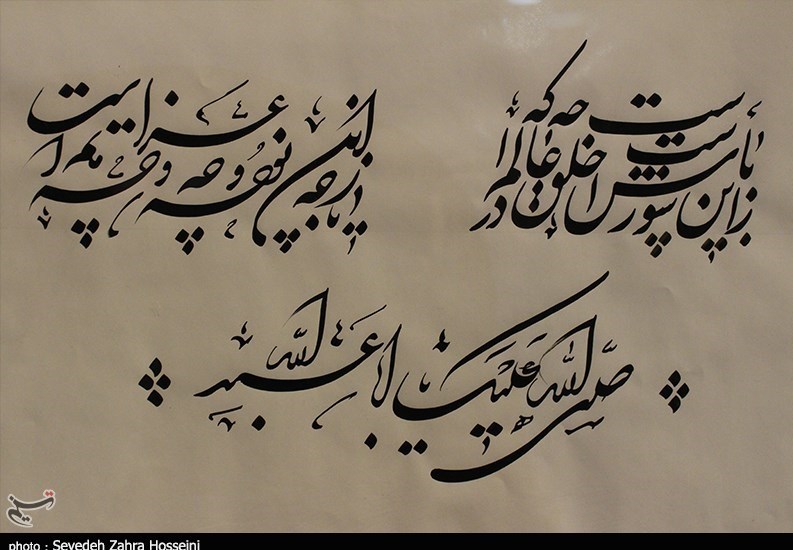 باز این چه شورش است که در خلق عالم است
باز این چه نوحه و چه عزا و چه ماتم است
صلی الله علیک یا اباعبدالله
تسنیم
photo : Seyedeh Zahra Hosseini